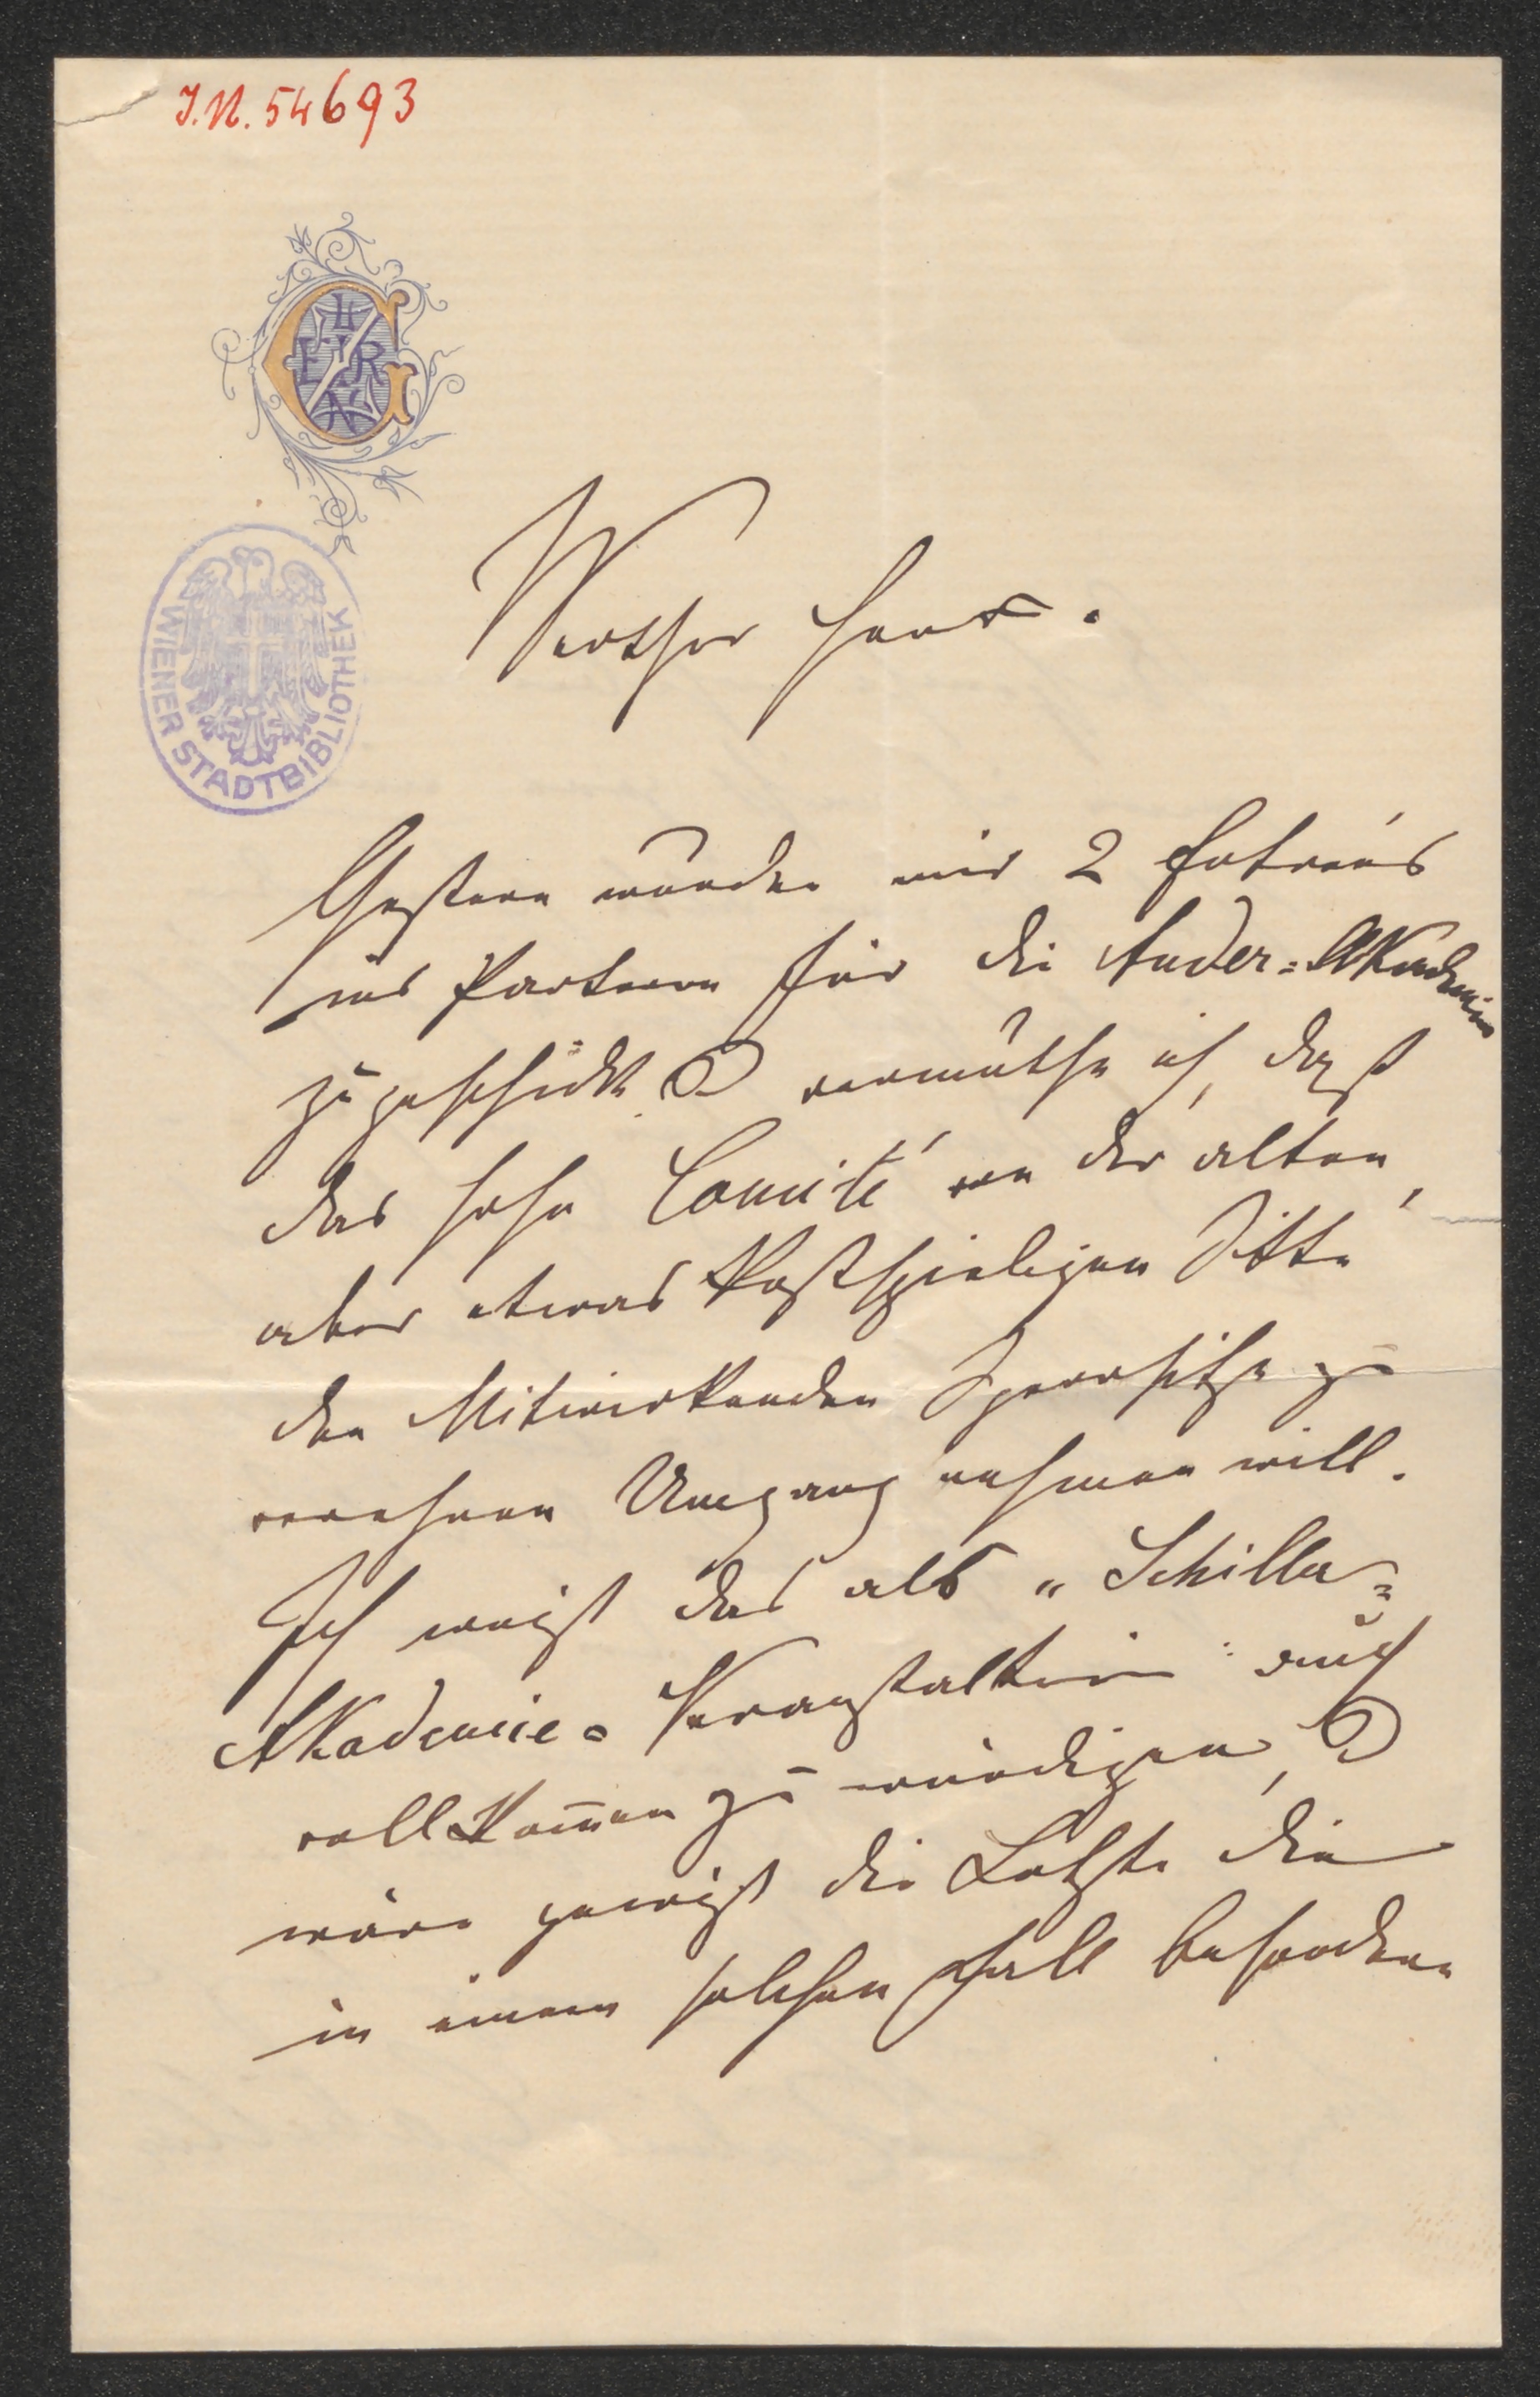 I.N. 54693
WIENER STADTBIBLIOTHEK
Werther Herr.
Gestern wurden mir 2 Entrées
ins Parterre für die Ander-Akademie
zugeschickt. vermuthe ich, daß
das hohe Comité von der alten,
aber etwas kostspieligen Sitte
den Mitwirkenden Sperrsitze zu
verehren Umgang nehmen will.
Ich weiß das als "Schiller-
Akademie-Veranstalterin" auch
vollkom̄en zu würdigen,
wäre gewiß die Letzte die
in einem solchen Fall besondere